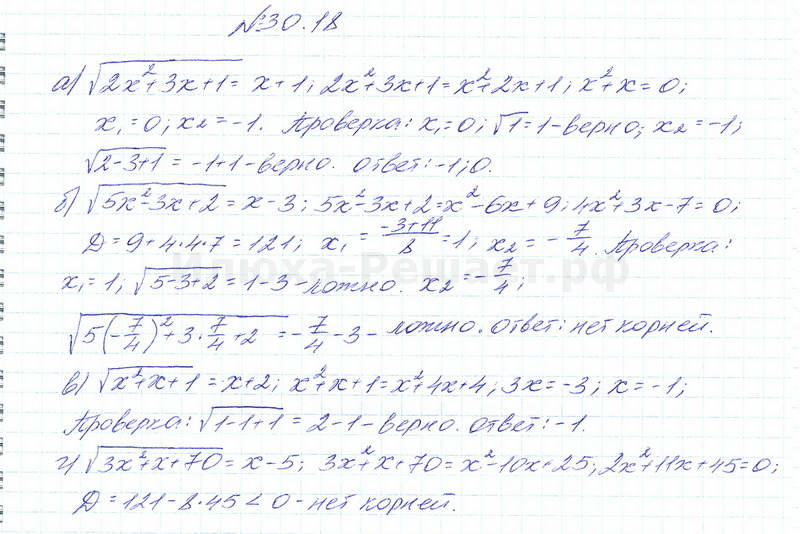 №30.18
а) √(2x²+3x+1) = x+1; 2x²+3x+1=x²+2x+1; x²+x=0;
x₁=0; x₂=-1. Проверка: x₁=0; √1=1-верно; x₂=-1;
√(2-3+1) = -1+1-верно. Ответ: -1; 0.
б) √(5x²-3x+2) = x-3; 5x²-3x+2=x²-6x+9; 4x²+3x-7=0;
Д=9+4·4·7=121; x₁ = (-3+11)/8 = 1; x₂ = -7/4. Проверка:
Илюха-Решает.рф
x₁=1; √(5-3+2) = 1-3-ложно. x₂=-7/4;
√(5(-7/4)²+3·7/4+2) = -7/4-3 - ложно. Ответ: нет корней.
в) √(x²+x+1) = x+2; x²+x+1=x²+4x+4; 3x=-3; x=-1;
Проверка: √(1-1+1) = 2-1-верно. Ответ: -1.
г) √(3x²+x+70) = x-5; 3x²+x+70=x²-10x+25; 2x²+11x+45=0;
Д=121-8·45<0-нет корней.